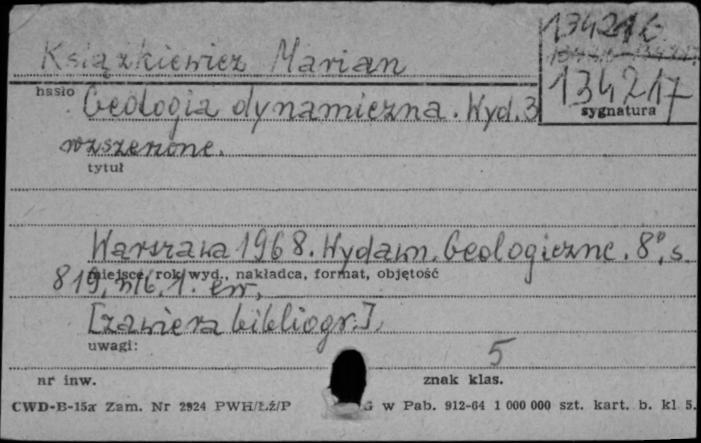 134216
Książkiewicz Marian
134217
hasło
sygnatura
Geologia dynamiczna. Wyd. 3
rozszerzone.
tytuł
Warszawa 1968. Wydawn. Geologiczne. 8°, s.
miejsce, rok wyd., nakładca, format, objętość
819, nlb. 1. err.
[zawiera bibliogr.].
uwagi:
5
nr inw.
znak klas.
CWD-B-15a Zam. Nr 2924 PWH/Łź/P G w Pab. 912-64 1 000 000 szt. kart. b. kl 5.